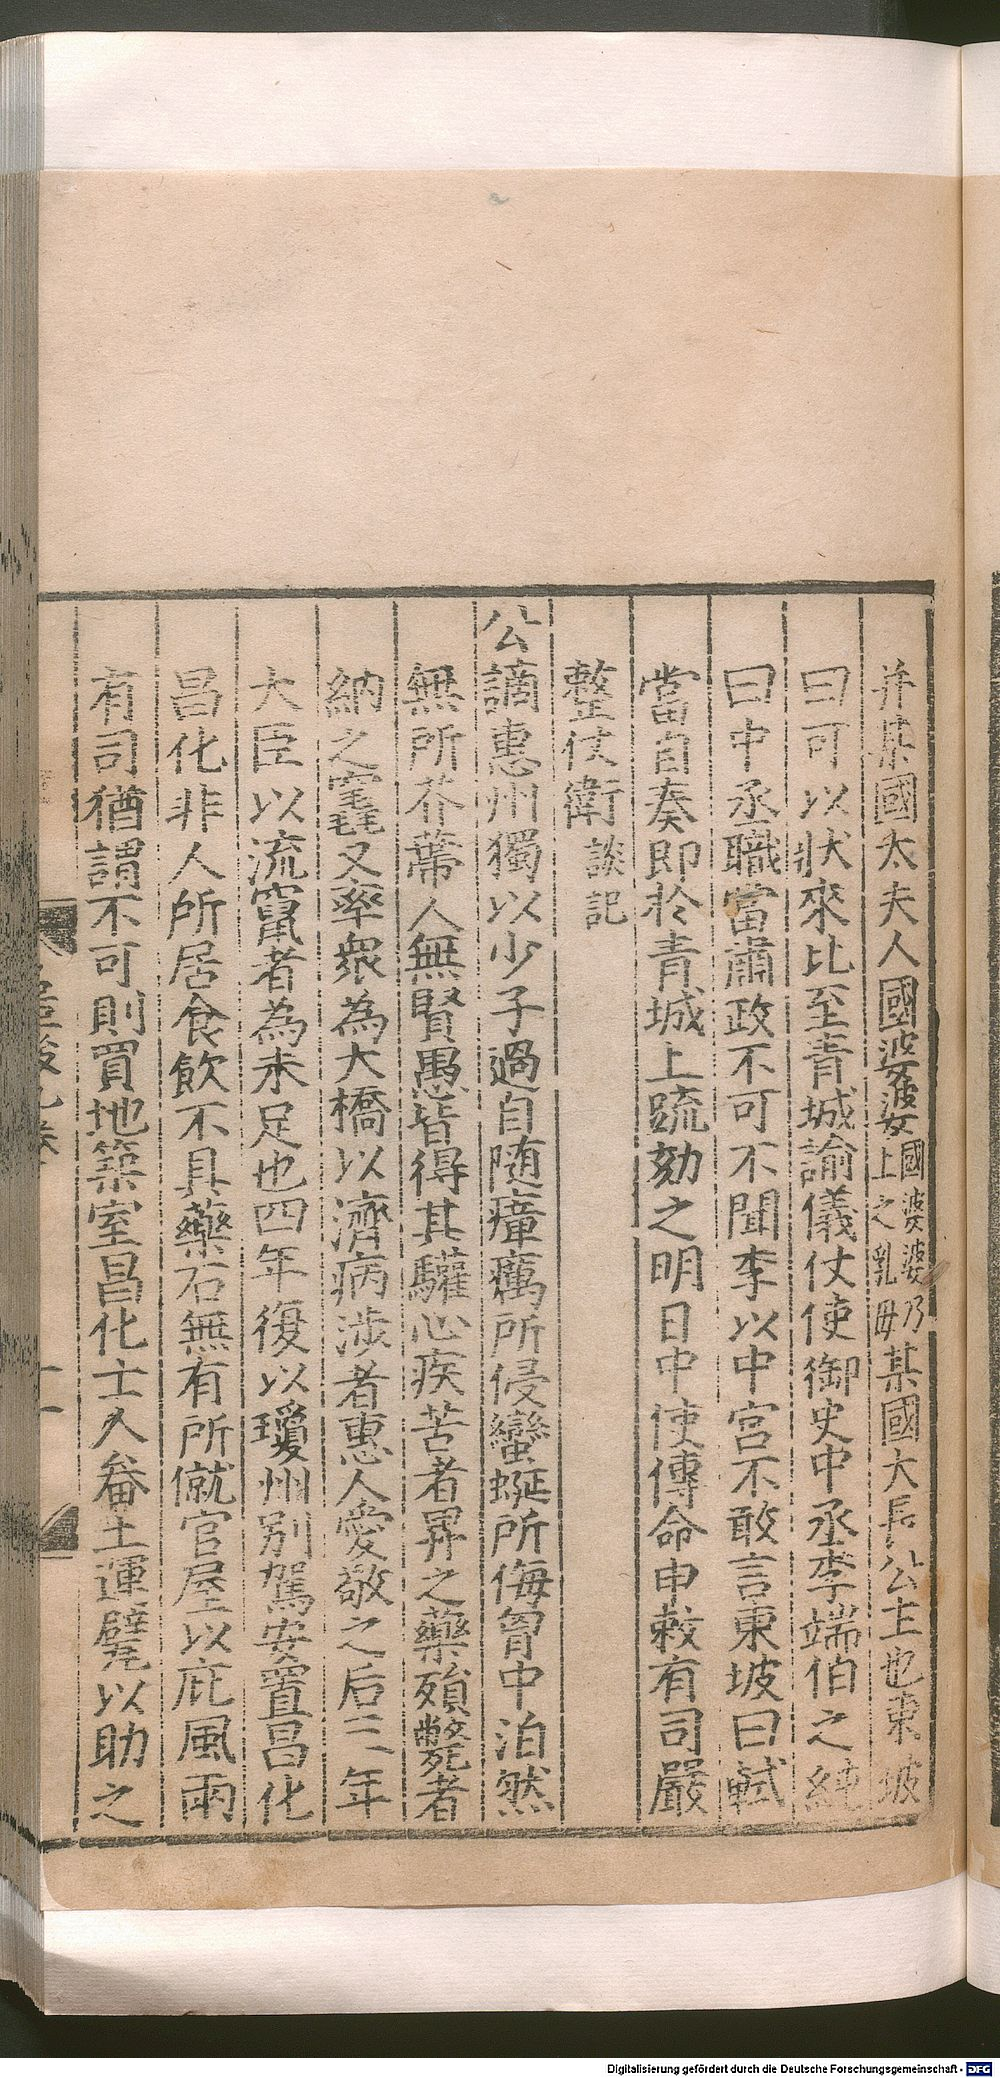 并某國太夫人國婆婆國婆婆乃上之乳母某國大長公主也東坡
曰可以狀來比至青城諭儀仗使御史中丞李端伯之純
曰中丞職當肅政不可不聞李以中宮不敢言東坡曰軾
當自奏即於青城上疏劾之明日中使傳命申敕有司嚴
整仗衛談記
公謫惠州獨以少子過自随瘴癘所侵蠻蜒所侮胷中泊然
無所芥蔕人無賢愚皆得其驩心疾苦者畀之藥殞斃者
納之竁又率衆為大橋以濟病涉者惠人愛敬之后三年
大臣以流竄者為未足也四年復以瓊州別駕安置昌化
昌化非人所居食飲不具藥石無有所僦官屋以庇風雨
有司猶謂不可則買地築室昌化士人畚土運甓以助之
Digitalisierung gefördert durch die Deutsche Forschungsgemeinschaft - DFG